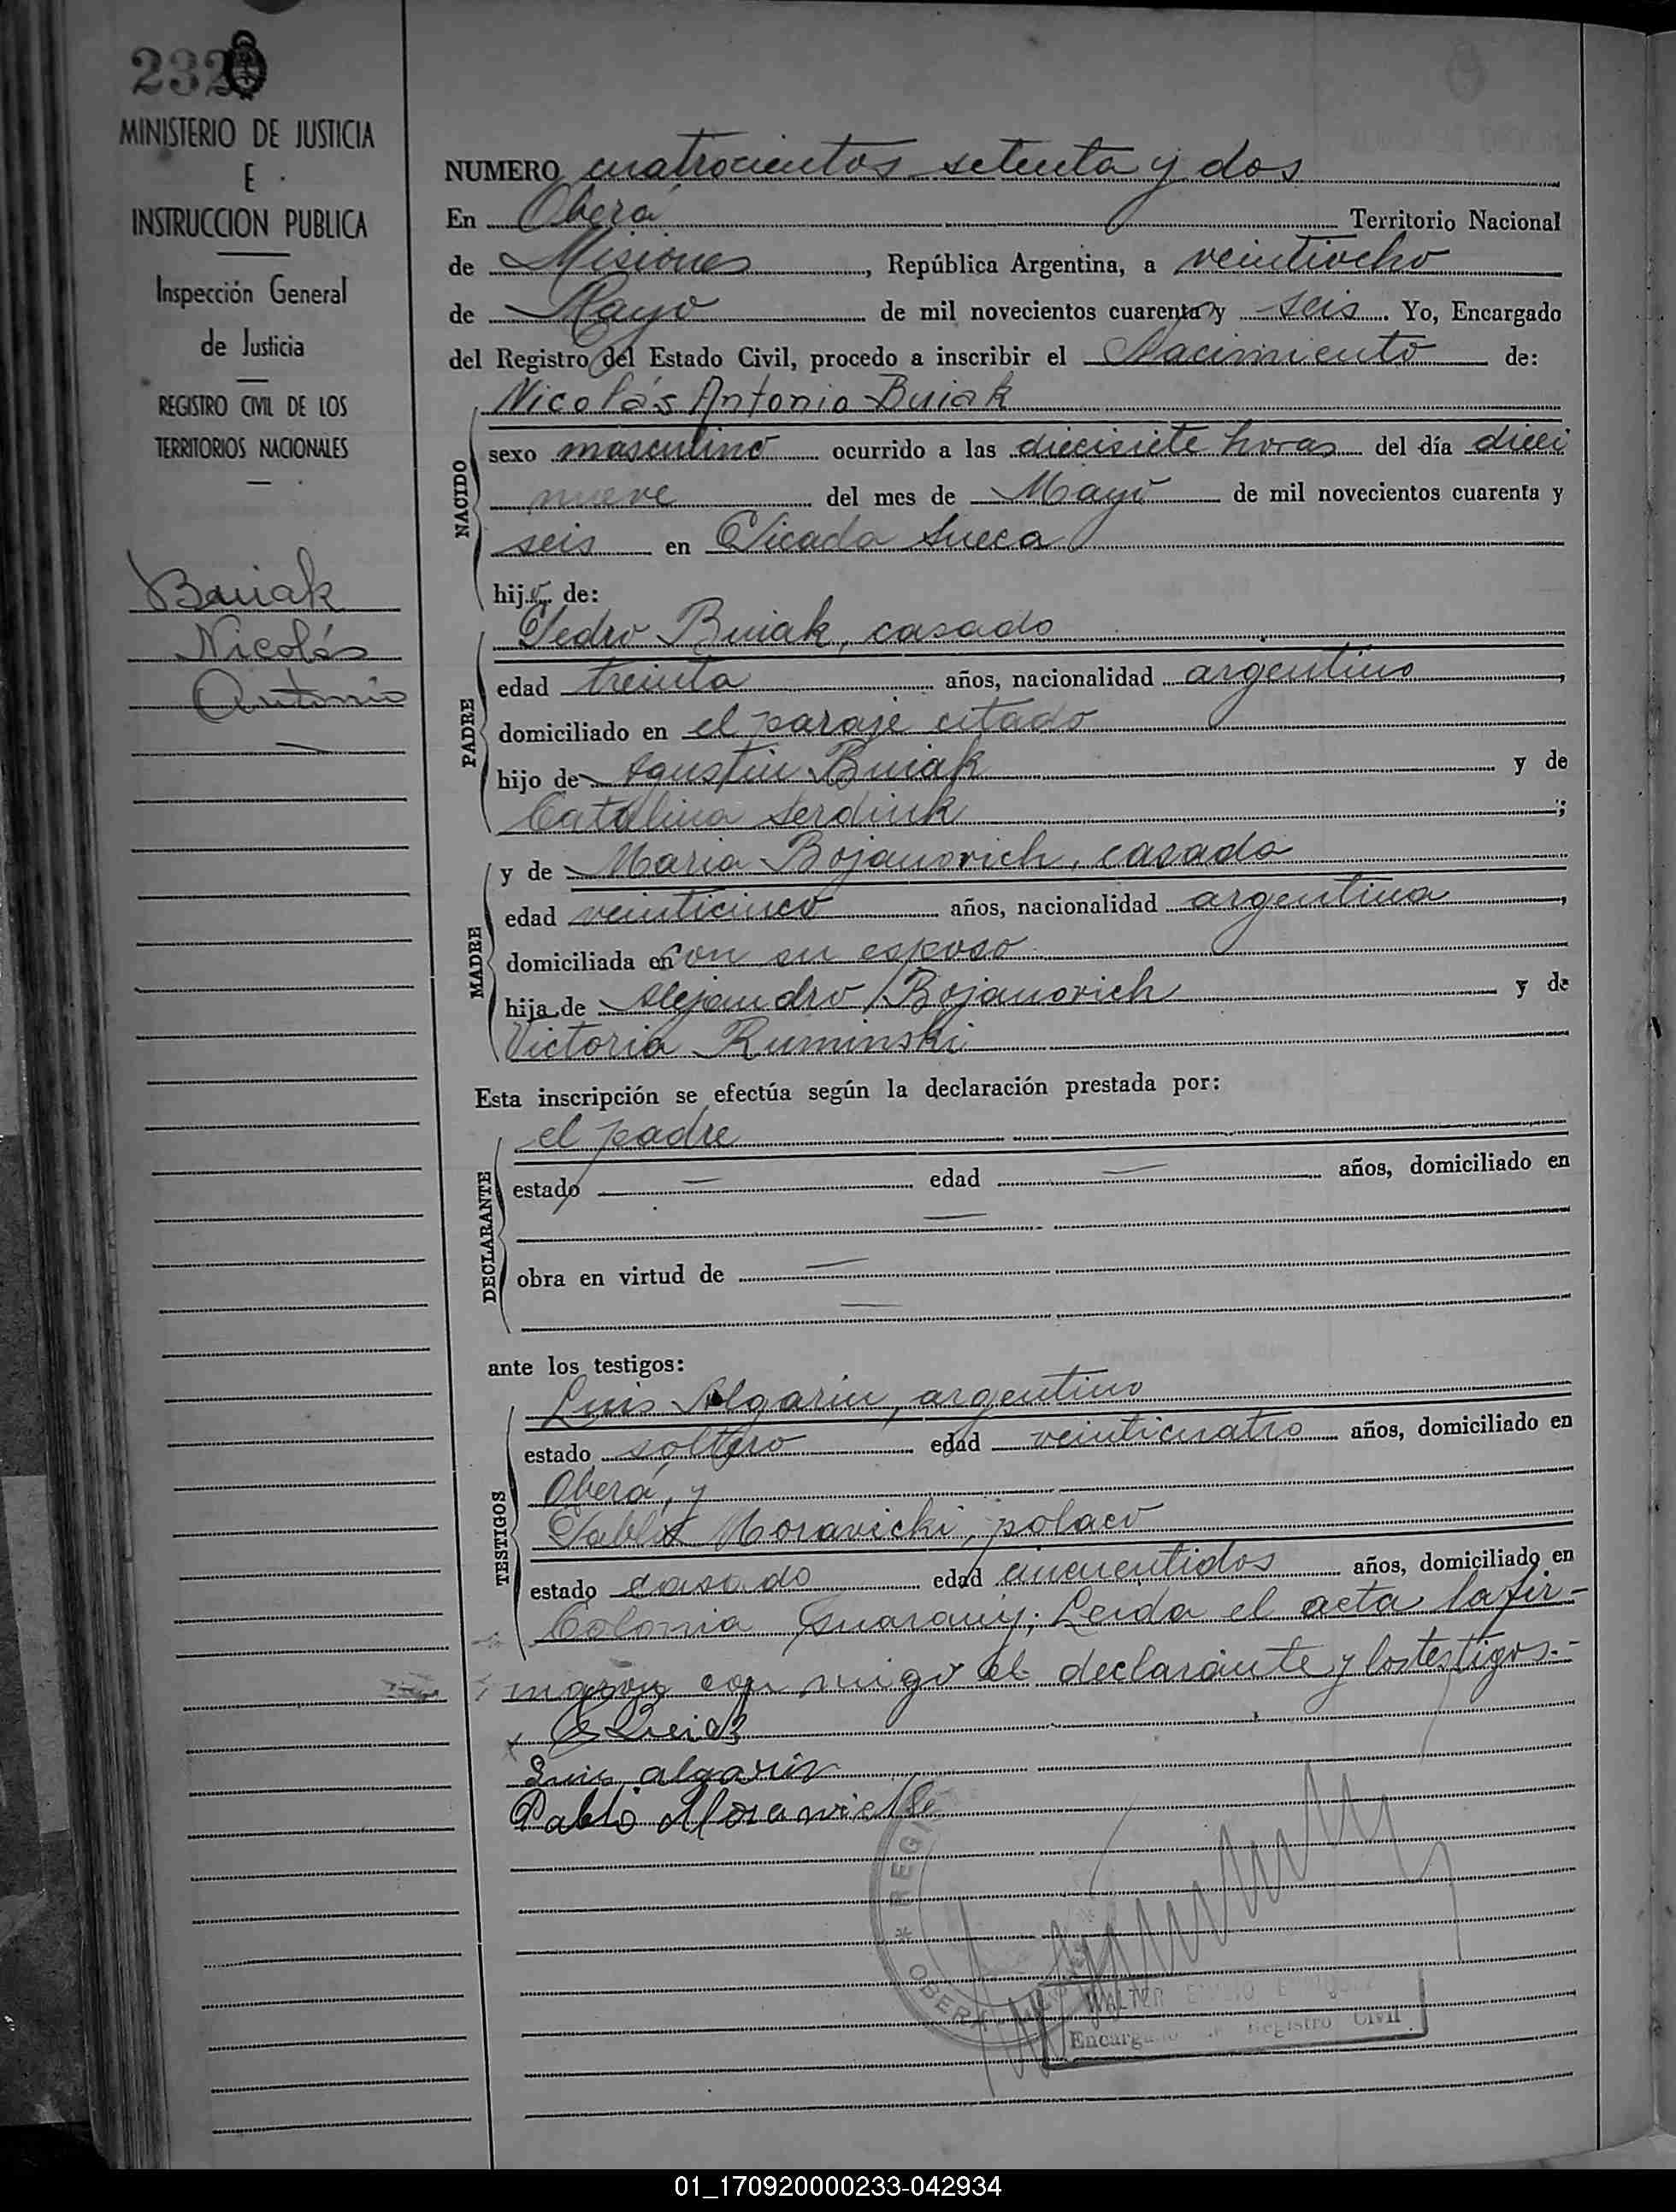 232
MINISTERIO DE JUSTICIA
E
INSTRUCCION PUBLICA
Inspección General
de Justicia
REGISTRO CIVIL DE LOS
TERRITORIOS NACIONALES
Buiak
Nicolás
Antonio
NUMERO cuatrocientos setenta y dos
En Oberá Territorio Nacional
de Misiones, República Argentina, a veintiocho
de Mayo de mil novecientos cuarenta y seis. Yo, Encargado
del Registro del Estado Civil, procedo a inscribir el Nacimiento de:
Nicolás Antonio Buiak
NACIDO
sexo masculino ocurrido a las diecisiete horas del día dieci
nueve del mes de Mayo de mil novecientos cuarenta y
seis en Picada Sueca
hijo de:
Pedro Buiak, casado
PADRE
edad treinta años, nacionalidad argentino,
domiciliado en el paraje citado
hijo de Agustín Buiak y de
Catalina Serdiuk;
y de María Bojanovich, casada
MADRE
edad veinticinco años, nacionalidad argentina,
domiciliada en con su esposo
hija de Alejandro Bojanovich y de
Victoria Ruminski
Esta inscripción se efectúa según la declaración prestada por:
el padre
DECLARANTE
estado — edad — años, domiciliado en
—
obra en virtud de —
—
ante los testigos:
Luis Algarin, argentino
TESTIGOS
estado soltero edad veinticuatro años, domiciliado en
Oberá, y
Pablo Moravicki, polaco
estado casado edad cincuentidos años, domiciliado en
Colonia Guarany; Leida el acta la fir-
maron con migo el declarante y los testigos.-
Luis algarin
Pablo
REGI
OBERA
WALTER
Encargado de Registro Civil
01_170920000233-042934